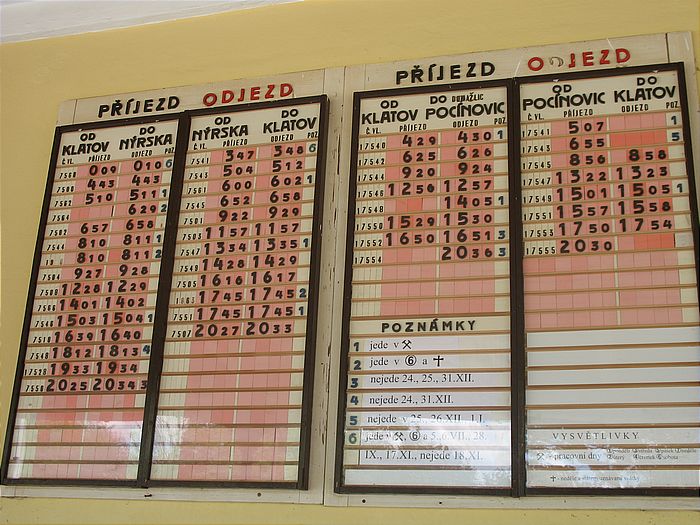 PŘÍJEZD ODJEZD
OD KLATOV DO NÝRSKA
Č.VL. PŘÍJEZD ODJEZD POZ
7560 0 09 0 10 6
4 43 4 43
5 10 5 11 1
6 29 2
6 57 6 58
7544 8 10 8 11 1
8 10 8 11 2
7504 9 27 9 28
12 28 12 29
14 01 14 02
7546 15 03 15 04 1
16 39 16 40
7548 18 12 18 13 4
17528 19 33 19 34
7550 20 25 20 34 3
OD NÝRSKA DO KLATOV
Č.VL. PŘÍJEZD ODJEZD POZ
7541 3 47 3 48 6
7543 5 04 5 12
7561 6 00 6 02 1
7545 6 52 6 58
7501 9 22 9 29
7503 11 57 11 57
7547 13 34 13 35 1
7549 14 28 14 29
7505 16 16 16 17
17 45 17 45 2
7551 17 45 17 45 1
7507 20 27 20 33
PŘÍJEZD ODJEZD
OD KLATOV DO DOMAŽLIC POCÍNOVIC
Č.VL. PŘÍJEZD ODJEZD POZ
17540 4 29 4 30 1
17542 6 25 6 26
17544 9 20 9 24
17546 12 56 12 57
17548 14 05 1
17550 15 29 15 30
17552 16 50 16 51 3
17554 20 36 3
OD POCÍNOVIC DO KLATOV
Č.VL. PŘÍJEZD ODJEZD POZ
17541 5 07 1
17543 6 55 5
17545 8 56 8 58
17547 13 22 13 23
17549 15 01 15 05 1
17551 15 57 15 58
17553 17 50 17 54
17555 20 30
POZNÁMKY
1 jede v ⚒
2 jede v ⑥ a ✝
3 nejede 24., 25., 31.XII.
4 nejede 24., 31.XII.
5 nejede v 25., 26.XII., 1.I.
6 jede v ⚒, ⑥ a 5.,6.VII., 28.
IX., 17.XI., nejede 18.XI.
VYSVĚTLIVKY
⚒ - pracovní dny
✝ - neděle a státem uznávané svátky